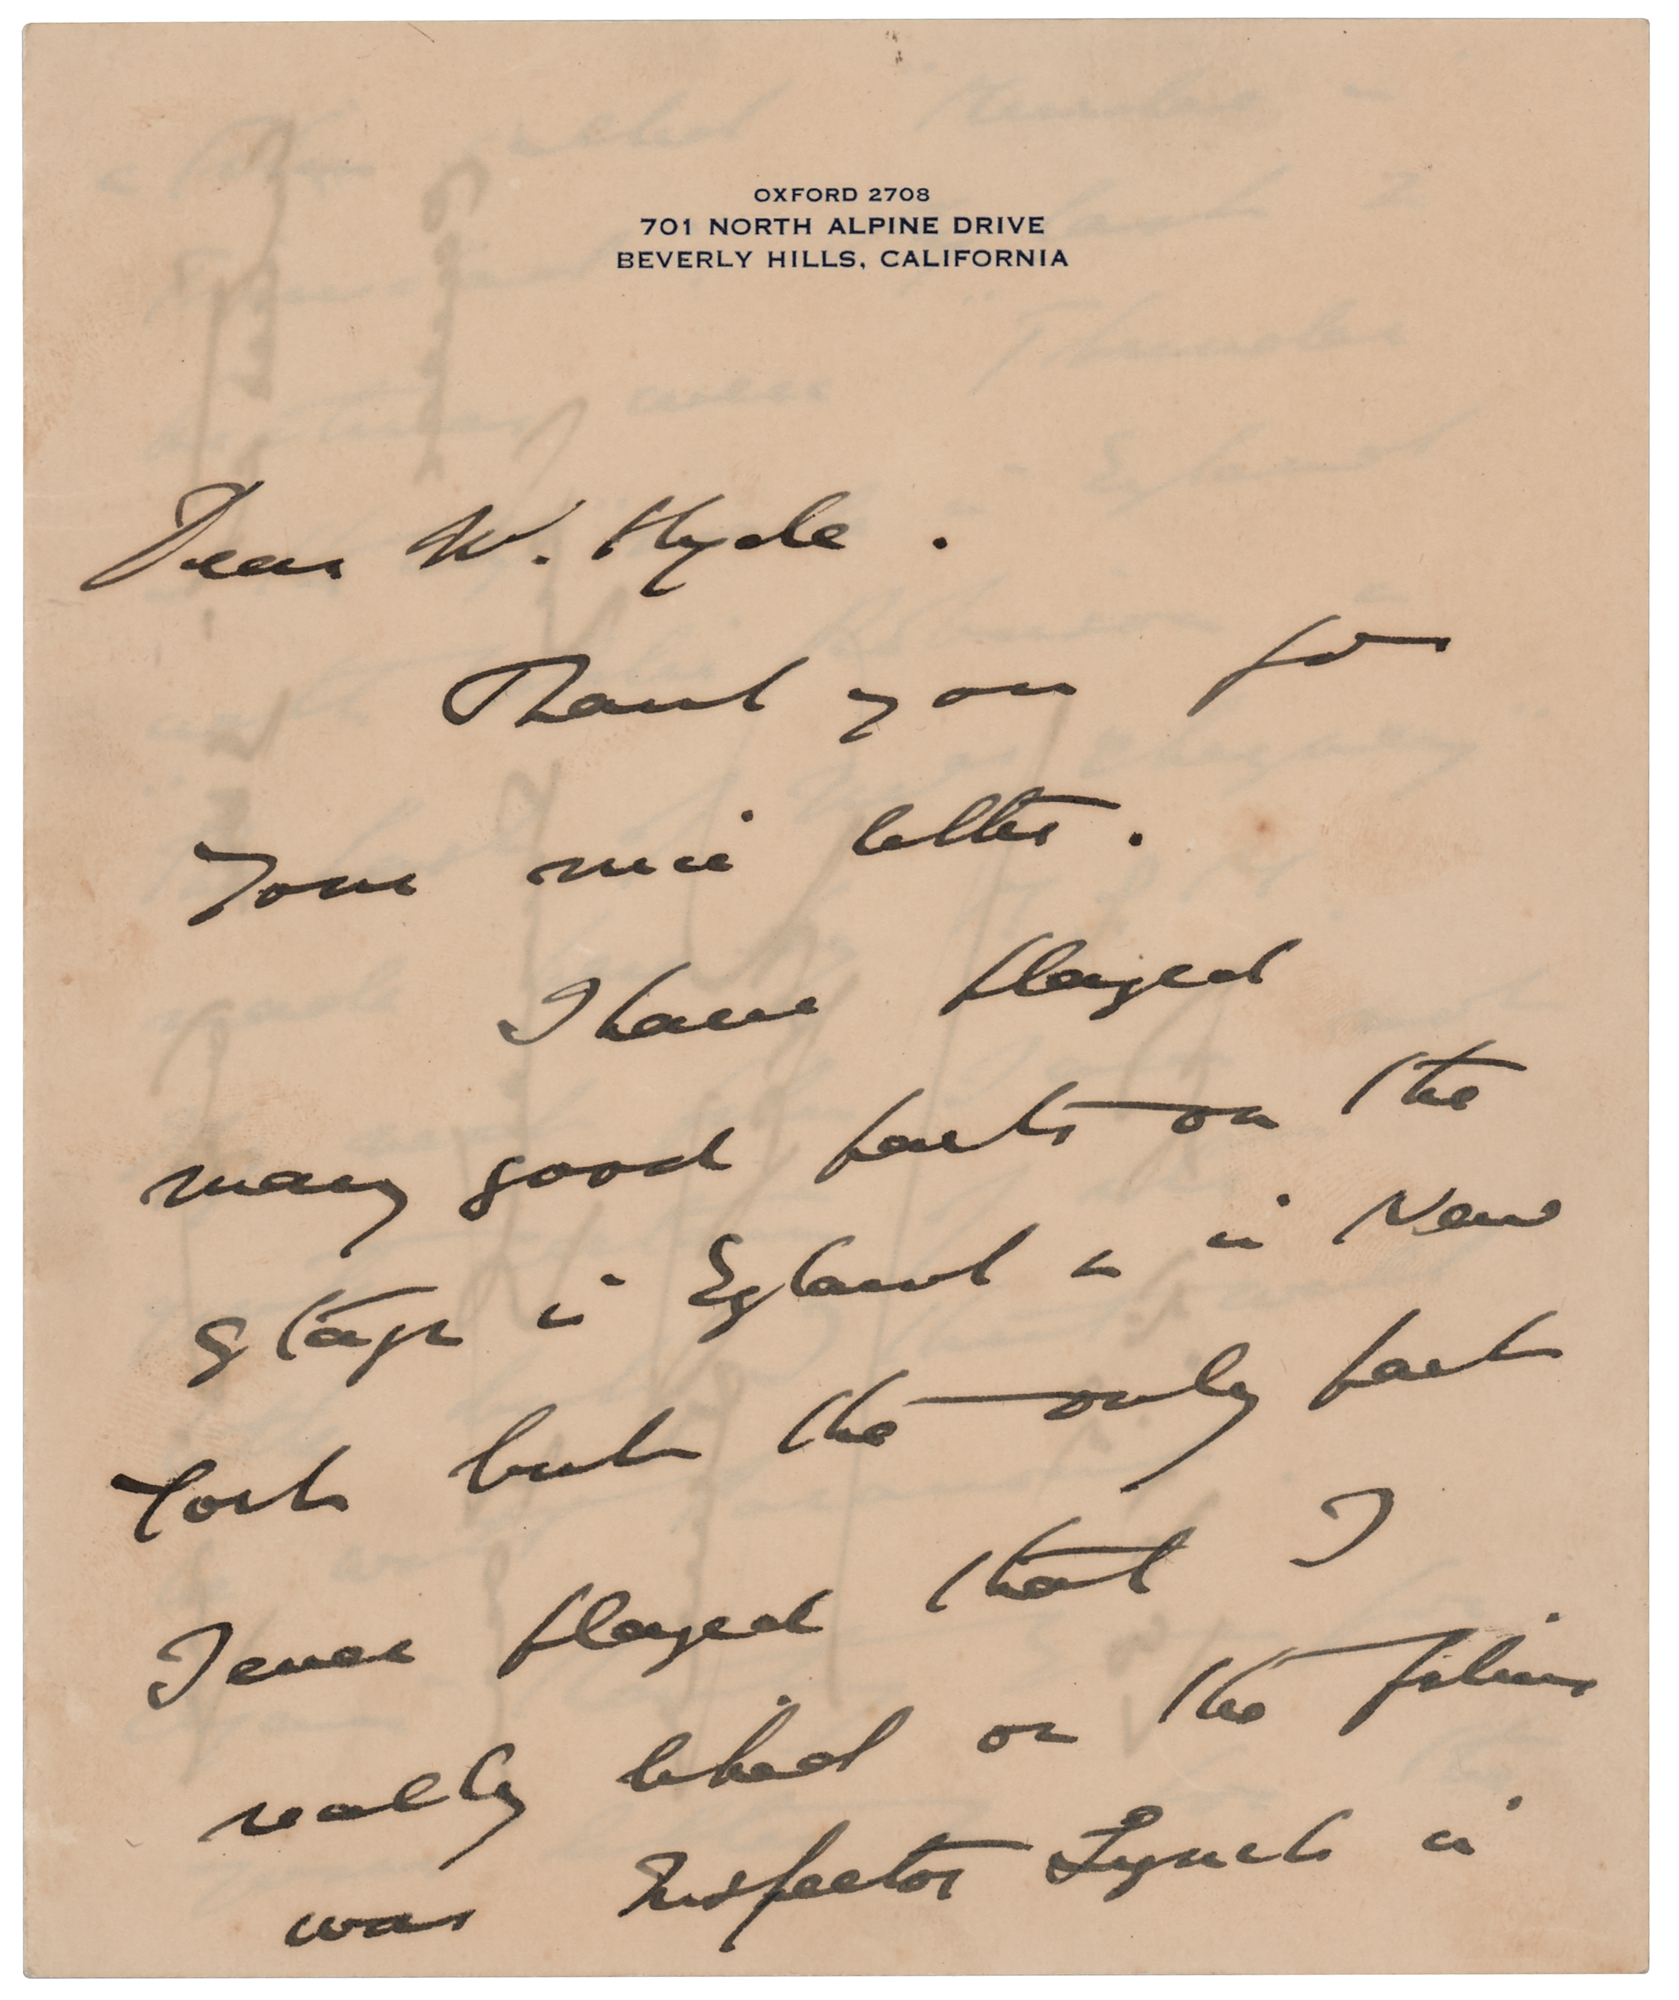 OXFORD 2708
701 NORTH ALPINE DRIVE
BEVERLY HILLS, CALIFORNIA
Dear Mr. Hyde.
Thank you for
your nice letter.
I have played
many good parts on the
stage in England & in New
York but the only part
I ever played that I
really liked on the films
was Inspector Lynch in